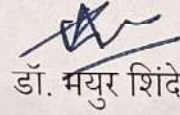 डॉ. मयुर शिंदे